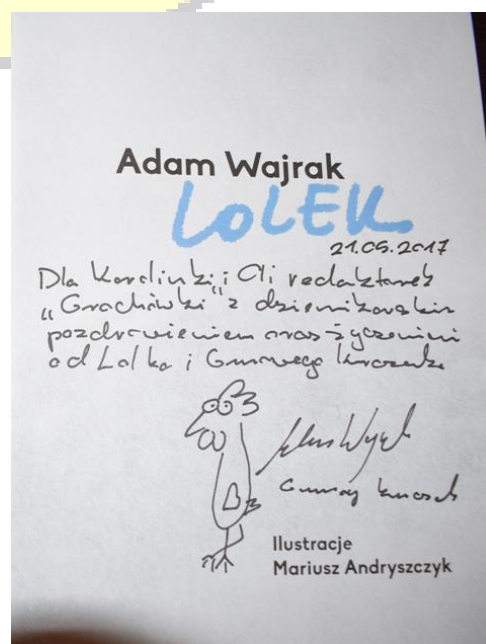 Adam Wajrak
LOLEK
21.05.2017
Dla Karolinki i Oli redaktorek
„Grochówki" z dziennikarskim
pozdrowieniem oraz życzeniami
od Lolka i Gumowego kurczaka
Gumowy kurczak
Ilustracje
Mariusz Andryszczyk